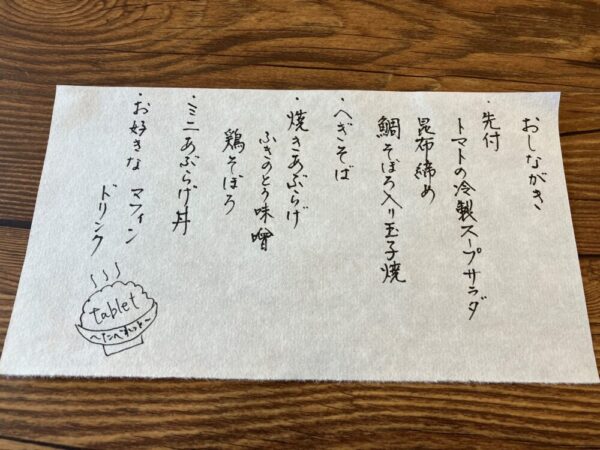 おしながき
・先付
トマトの冷製スープサラダ
昆布締め
鯛そぼろ入り玉子焼
・へぎそば
・焼きあぶらげ
ふきのとう味噌
鶏そぼろ
・ミニあぶらげ丼
・お好きな マフィン
ドリンク
tablet
〜たべれっと〜